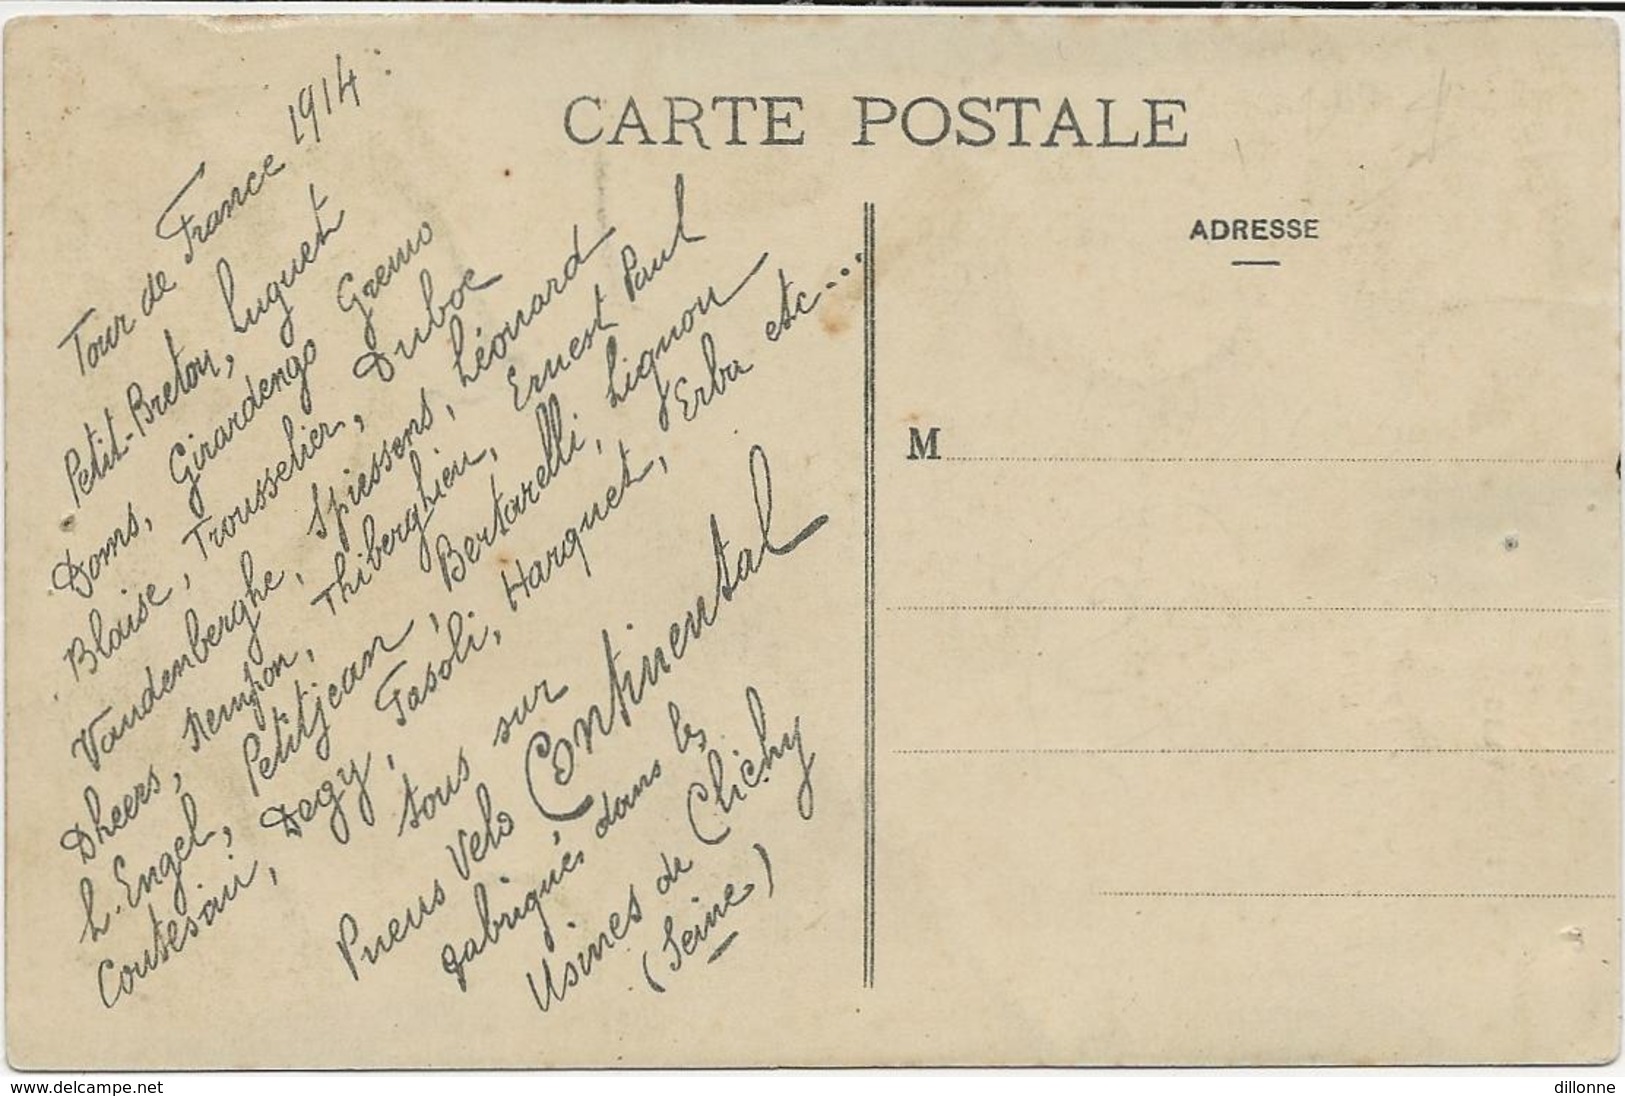 CARTE POSTALE
ADRESSE
M
Tour de France 1914 :
Petit-Breton, Luguet
Doms, Girardengo Gremo
Blaise, Trousselier, Duboc
Vandenberghe, Spiessens, Léonard
Dheers, Nempon, Thiberghien, Ernest Paul
L. Engel, Petitjean, Bertarelli, Lignon
Coutesain, Degy, Fasoli, Harquet, Erba etc...
tous sur
Pneus Velo Continental
fabriqués dans les
Usines de Clichy
(Seine)
www.delcampe.net
dillonne